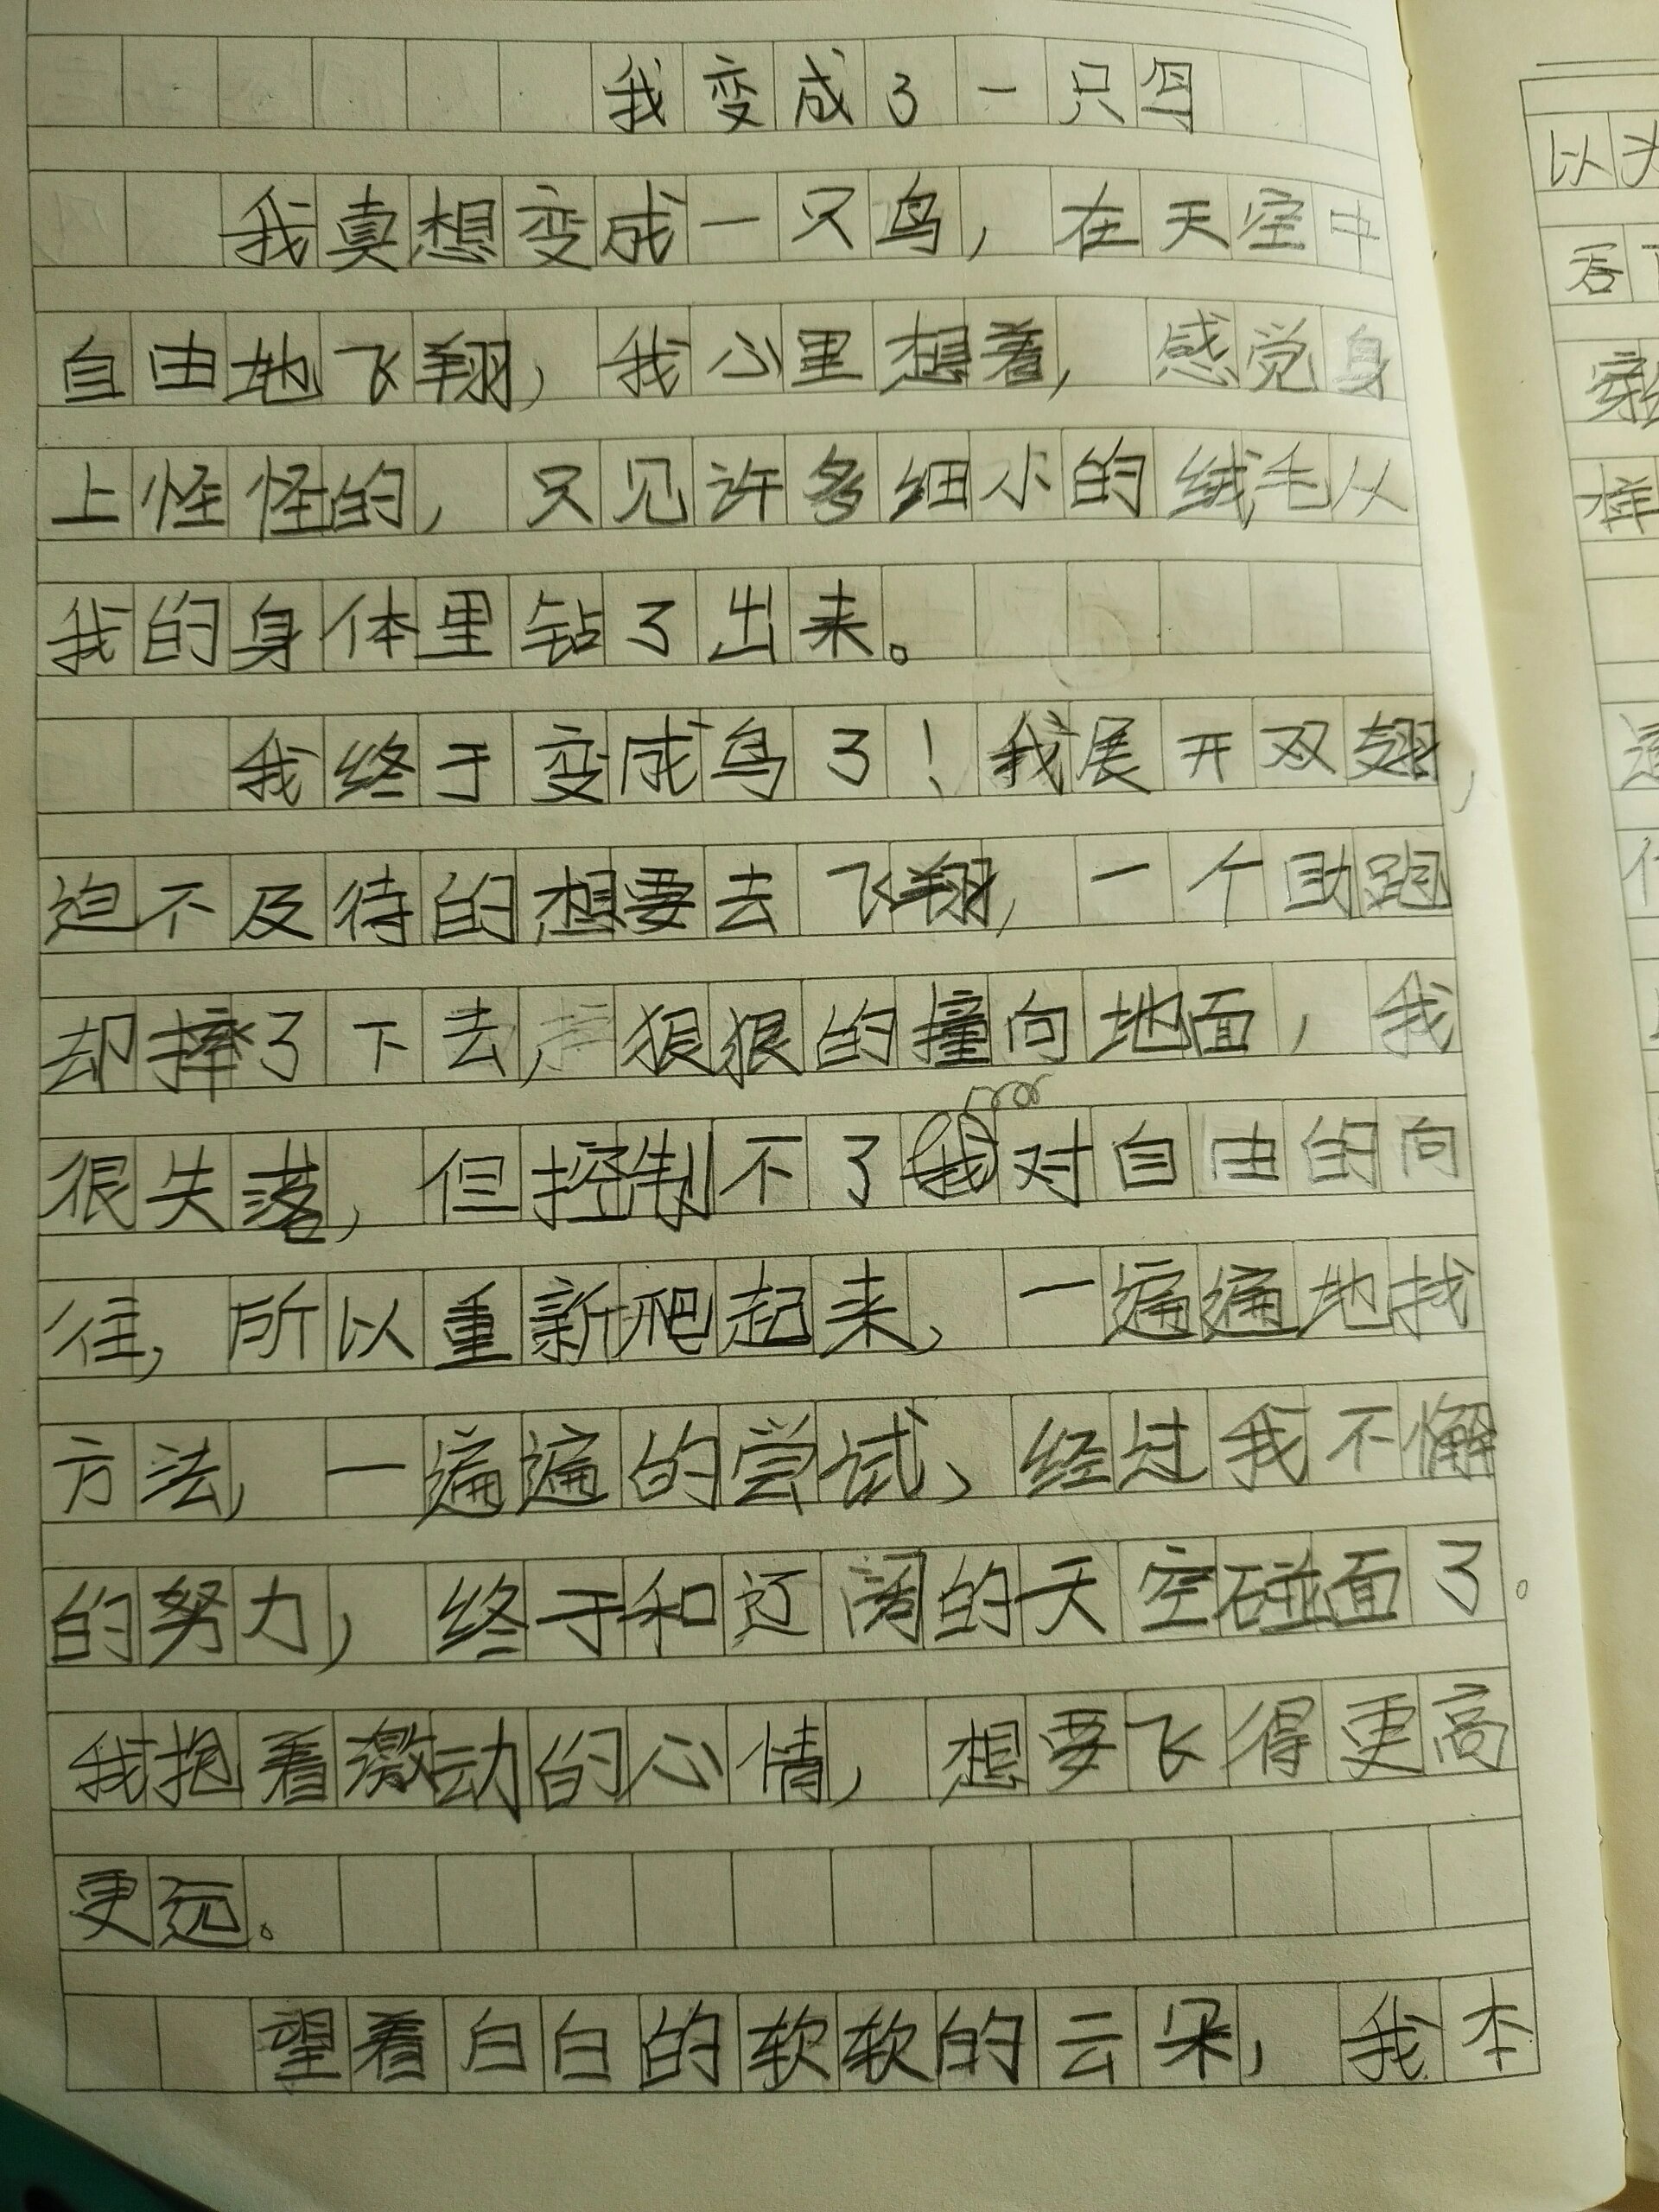 我变成了一只鸟
我真想变成一只鸟，在天空中
自由地飞翔，我心里想着，感觉身
上怪怪的，只见许多细小的绒毛从
我的身体里钻了出来。
我终于变成鸟了！我展开双翅，
迫不及待的想要去飞翔，一个助跑
却摔了下去，狠狠的撞向地面，我
很失落，但控制不了我对自由的向
往，所以重新爬起来，一遍遍地找
方法，一遍遍的尝试、经过我不懈
的努力，终于和辽阔的天空碰面了。
我抱着激动的心情，想要飞得更高
更远。
望着白白的软软的云朵，我本
以为
吞下
穿
样